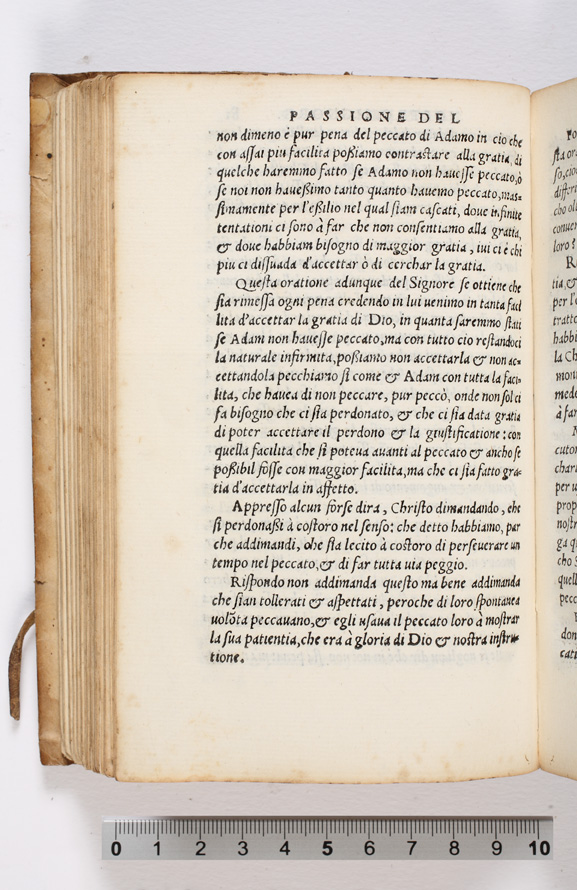 PASSIONE DEL
non dimeno è pur pena del peccato di Adamo in cio che
con assai piu facilita possiamo contrastare alla gratia, di
quelche haremmo fatto se Adamo non hauesse peccato, ò
se noi non hauessimo tanto quanto hauemo peccato, mas-
simamente per l'essilio nel qual siam cascati, doue infinite
tentationi ci sono à far che non consentiamo alla gratia,
& doue habbiam bisogno di maggior gratia, iui ci è chi
piu ci dissuada d'accettar ò di cerchar la gratia.
Questa oratione adunque del Signore se ottiene che
sia rimessa ogni pena credendo in lui uenimo in tanta faci
lita d'accettar la gratia di Dio, in quanta saremmo stati
se Adam non hauesse peccato, ma con tutto cio restandoci
la naturale infirmita, possiamo non accettarla & non ac-
cettandola pecchiamo si come & Adam con tutta la faci-
lita, che hauea di non peccare, pur peccò, onde non sol ci
fa bisogno che ci sia perdonato, & che ci sia data gratia
di poter accettare il perdono & la giustificatione: con
quella facilita che si poteua auanti al peccato & ancho se
possibil fosse con maggior facilita, ma che ci sia fatto gra-
tia d'accettarla in affetto.
Appresso alcun forse dira, Christo dimandando, che
si perdonassi à costoro nel senso: che detto habbiamo, par
che addimandi, che sia lecito à costoro di perseuerare un
tempo nel peccato, & di far tutta uia peggio.
Rispondo non addimanda questo ma bene addimanda
che sian tollerati & aspettati, peroche di loro spontanea
uolōta peccauano, & egli usaua il peccato loro à mostrar
la sua patientia, che era à gloria di Dio & nostra instru-
tione.
10 9 8 7 6 5 4 3 2 1 0